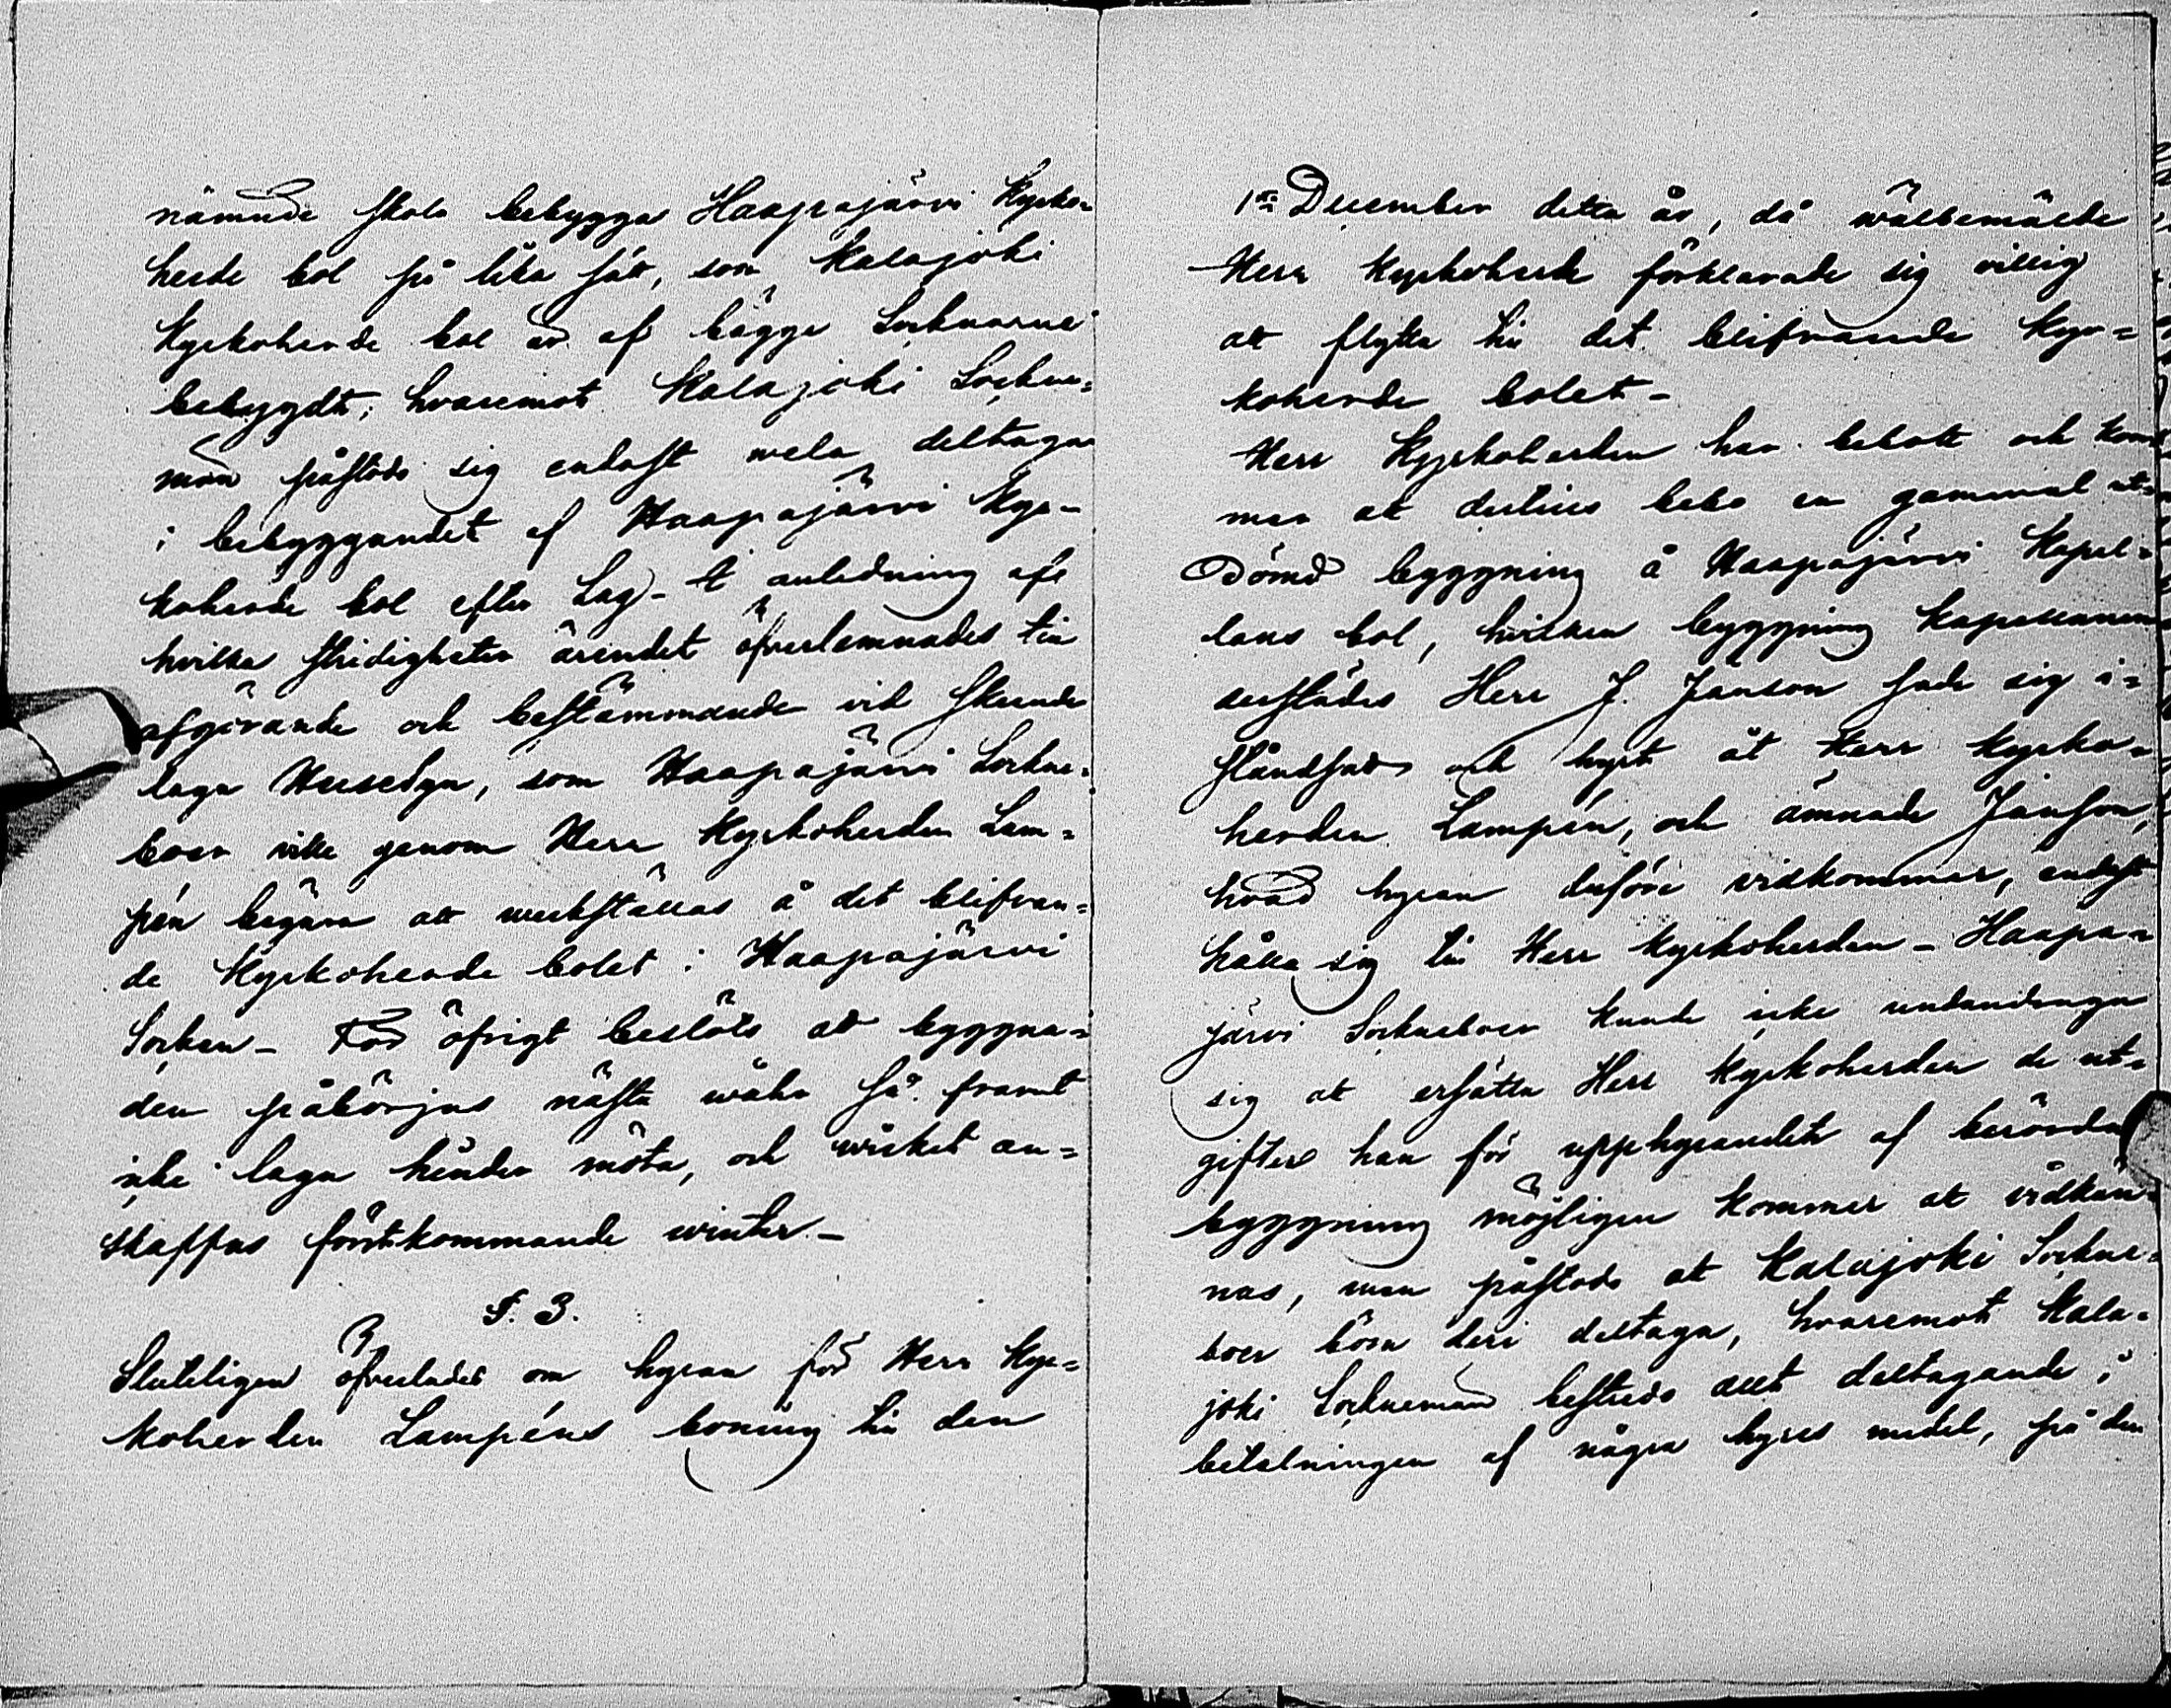 nämnde skola bebygga Haapajärvi Kyrko-
herde bol på lika sätt, som Kalajoki
Kyrkoherde bol är af bägge Socknarne
bebygdt; hvaremot Kalajoki Sockne-
män påstodo sig endast wela deltaga
i bebyggandet af Haapajärvi Kyr-
koherde bol efter Lag - I anledning af
hvilka stridigheter ärendet öfverlemnades till
afgörande och bestämmande vid skeende
laga Husesyn, som Haapajärvi Sockne-
boer ville genom Herr Kyrkoherden Lam-
pén begära att werkställas å det blifvan-
de Kyrkoherde bolet i Haapajärvi
Socken - För öfrigt beslöts att byggna-
den påbörjas nästa wåhr så framt
icke laga hinder möta, och wirket an-
skaffas förstkommande winter -
§. 3.
Slutligen öfverlades om hyran för Herr Kyr-
koherden Lampéns boning till den
1sta December detta år, då wälbemälde
Herr Kyrkoherde förklarade sig villig
att flytta till det blifvande Kyr-
koherde bolet -
Herr Kyrkoherden har bebott och kom
mer at dertills bebo en gammal ut-
dömd byggning å Haapajärvi Kapel-
lans bol, hvilken byggning Kapellanen
derstädes Herr J. Janson sade sig i-
ståndsatt och hyrt åt Herr Kyrko-
herden Lampén, och ämnade Janson,
hvad hyran derföre vidkommer, endast
hålla sig till Herr Kyrkoherden - Haapa-
järvi Sockneboer kunde icke undandraga
sig at ersätta Herr Kyrkoherden de ut-
gifter han för upphyrandet af berörda
byggning möjligen kommer at vidkän-
nas, men påstodo at Kalajoki Sockne-
boer böra deri deltaga, hvaremot Kala-
joki Socknemän bestredo allt deltagande i
betalningen af några hyres medel, på den